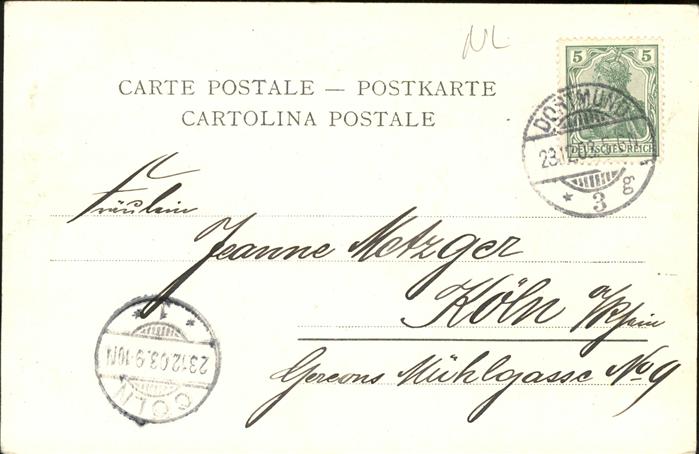 NL
5 5
DEUTSCHES REICH
DORTMUND
23.12.03. 5-6N
* 3 gg
CARTE POSTALE — POSTKARTE
CARTOLINA POSTALE
Fräulein
Jeanne Metzger
Köln a/Rhein
Gereons Mühlgasse No 9
CÖLN
23.12.03.9-10N
* 1 *